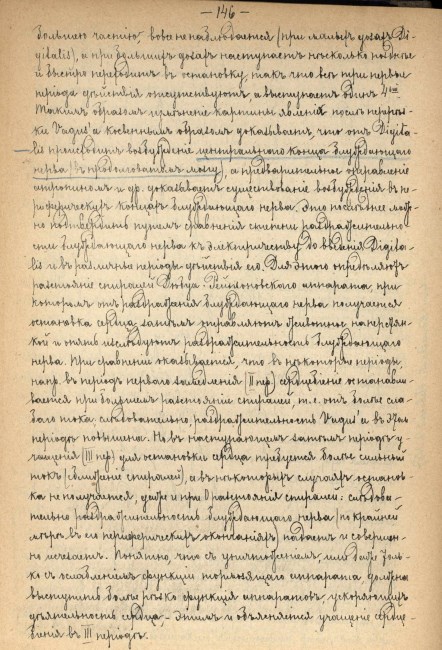 — 146 —
большею частію, вовсе не наблюдается (при малыхъ дозахъ Di-
gitalis), а при большихъ дозахъ наступаетъ нѣсколько позднѣе
и быстро переходитъ въ остановку, такъ что всѣ три первые
періода дѣйствія отсутствуютъ, а выступаетъ одинъ 4ый
Такимъ образомъ измѣненіе картины явленія послѣ перерѣз-
ки Vagus'а косвеннымъ образомъ доказываетъ что отъ Digita-
lis происходитъ возбужденіе центральнаго конца блуждающаго
нерва (въ продолговатомъ мозгу), а предварительное отравленіе
атропиномъ и др. доказываетъ существованіе возбужденія въ пе-
риферическихъ концахъ блуждающаго нерва. Это послѣднее мож-
но подтвердить путемъ сравненія степени раздражительно-
сти блуждающаго нерва къ электричеству до введенія Digita-
lis и въ различные періоды дѣйствія его. Для этого опредѣляютъ
разстояніе спиралей Дюбуа-Реймоновскаго аппарата, при
которомъ отъ раздраженія блуждающаго нерва получается
остановка сердца, затѣмъ отравляютъ животное наперстян-
кой и опять изслѣдуютъ раздражительность блуждающаго
нерва. При сравненіи оказывается, что въ нѣкоторые періоды
напр. въ періодъ перваго замедленія (II пер) сердцебіеніе останавли-
вается при большемъ разстояніи спиралей, т. е. отъ болѣе сла-
баго тока; слѣдовательно, раздражительность Vagus'а въ этомъ
періодѣ повышена. Но въ наступающемъ затѣмъ періодѣ у-
чащенія (III пер) для остановки сердца требуется болѣе сильный
токъ (сближеніе спиралей), а въ нѣкоторыхъ случаяхъ останов-
ка не получается, даже и при 0 разстоянія спиралей: слѣдова-
тельно раздражительность блуждающаго нерва (по крайней
мѣрѣ въ его периферическихъ окончаніяхъ) падаетъ и совершен-
но исчезаетъ. Понятно, что съ уничтоженіемъ, или даже толь-
ко съ ослабленіемъ функціи тормозящаго аппарата должна
выступить болѣе рѣзко функція аппаратовъ, ускоряющихъ
дѣятельность сердца, — этимъ и объясняется учащеніе сердце-
біенія въ III періодѣ.